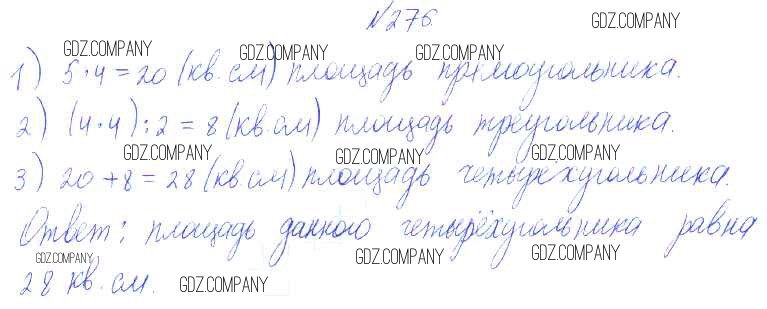 №276.
GDZ.COMPANY
GDZ.COMPANY GDZ.COMPANY GDZ.COMPANY
1) 5·4=20 (кв.см) площадь прямоугольника.
2) (4·4):2=8 (кв.см) площадь треугольника.
GDZ.COMPANY GDZ.COMPANY GDZ.COMPANY
3) 20+8=28 (кв.см) площадь четырёхугольника.
GDZ.COMPANY GDZ.COMPANY
Ответ: площадь данного четырёхугольника равна
GDZ.COMPANY GDZ.COMPANY GDZ.COMPANY
28 кв.см.
GDZ.COMPANY